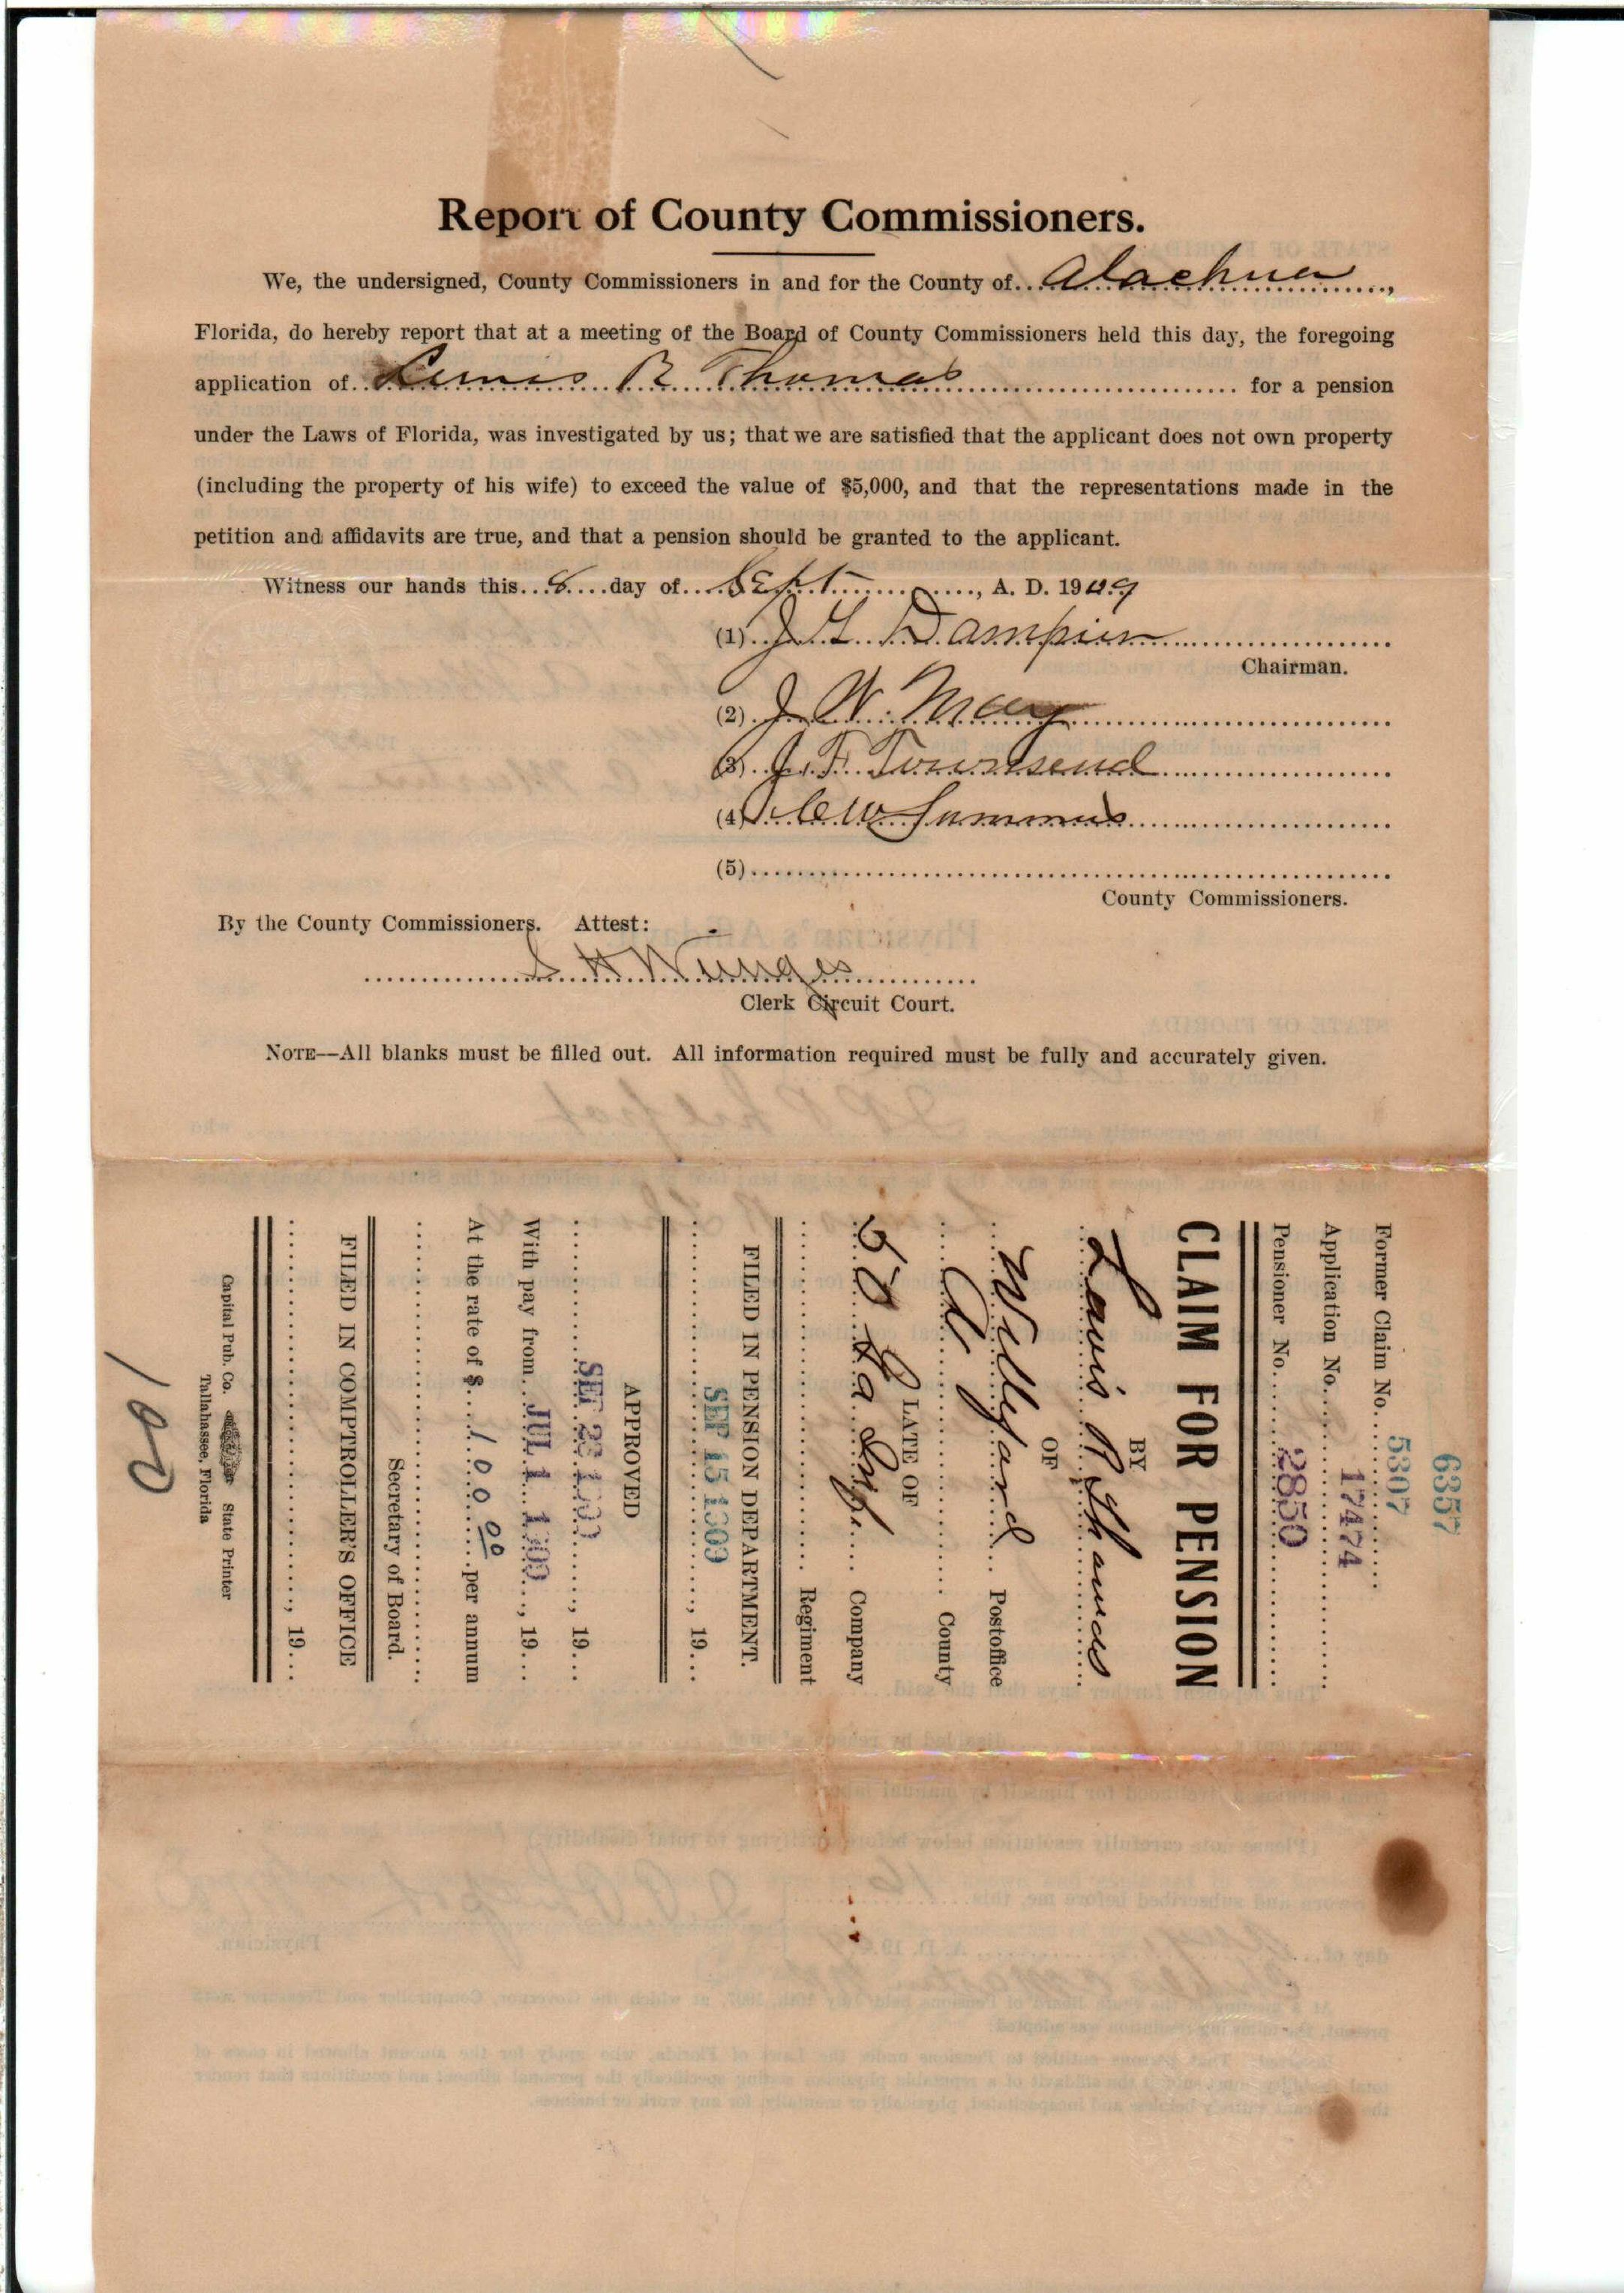 Report of County Commissioners.
We, the undersigned, County Commissioners in and for the County of Alachua,
Florida, do hereby report that at a meeting of the Board of County Commissioners held this day, the foregoing
application of Lewis R Thomas for a pension
under the Laws of Florida, was investigated by us; that we are satisfied that the applicant does not own property
(including the property of his wife) to exceed the value of $5,000, and that the representations made in the
petition and affidavits are true, and that a pension should be granted to the applicant.
Witness our hands this 8 day of Sept, A. D. 1909
(1) J G Dampier
Chairman.
(2) J. W. May
(3) J. F. Townsend
(4) C W
(5)
County Commissioners.
By the County Commissioners. Attest:
S H Wienges
Clerk Circuit Court.
NOTE—All blanks must be filled out. All information required must be fully and accurately given.
6357
5307
Former Claim No.
Application No. 17474
Pensioner No. 2850
CLAIM FOR PENSION
BY
Lewis R Thomas
OF
Postoffice
County
LATE OF
Company
Regiment
FILED IN PENSION DEPARTMENT.
SEP 15 1909, 19
APPROVED
SEP 23 1909, 19
With pay from JUL 1 1909, 19
At the rate of $ 100 00 per annum
Secretary of Board.
FILED IN COMPTROLLER'S OFFICE
, 19
Capital Pub. Co. State Printer
Tallahassee, Florida
100